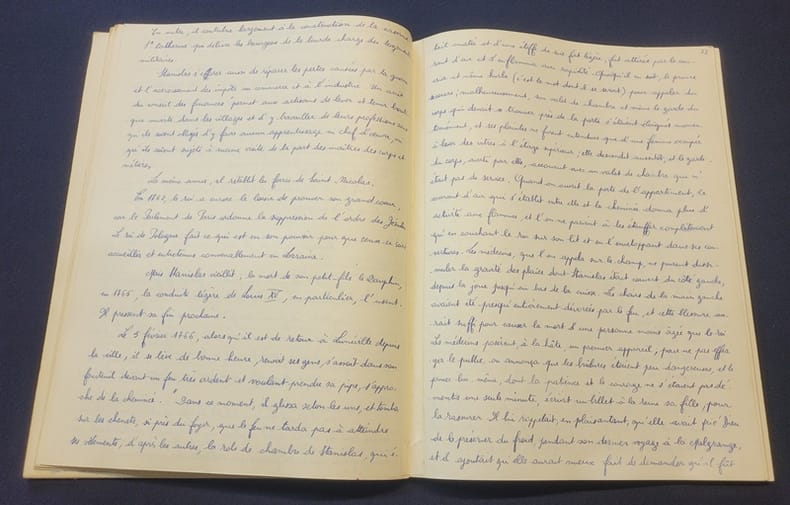 En outre, il contribue largement à la construction de la caserne
Ste Catherine qui délivre les bourgeois de la lourde charge des logements
militaires.
Stanislas s'efforce aussi de réparer les pertes causées par la guerre
et l'accroissement des impôts au commerce et à l'industrie. Un arrêt
du conseil des finances permet aux artisans de lever et tenir boutique
que ouverte dans les villages et d'y travailler de leurs professions sans
qu'ils soient obligés d'y faire aucun apprentissage ni chef d'œuvre, ni
qu'ils soient sujets à aucune visite de la part des maîtres des corps et
métiers.
La même année, il rétablit les foires de Saint-Nicolas.
En 1762, le roi a encore le loisir de prouver son grand cœur,
car le Parlement de Paris ordonne la suppression de l'ordre des Jésuites
Le roi de Pologne fait ce qui est en son pouvoir pour que ceux-ci soient
accueillis et entretenus convenablement en Lorraine.
Mais Stanislas vieillit; la mort de son petit-fils le Dauphin,
en 1765, la conduite légère de Louis XV, en particulier, l'usent.
Il pressent sa fin prochaine.
Le 5 février 1766, alors qu'il est de retour à Lunéville depuis
la veille, il se lève de bonne heure, renvoie ses gens, s'assoit dans son
fauteuil devant un feu très ardent et voulant prendre sa pipe, s'appro-
che de la cheminée. "Dans ce moment, il glissa selon les uns, et tomba
sur les chenets, si près du foyer, que le feu ne tarda pas à atteindre
ses vêtements, d'après les autres, la robe de chambre de Stanislas, qui é-
33
tait ouatée et d'une étoffe de soie fort légère, fut attirée par le cou-
rant d'air et s'enflamma avec rapidité. Quoiqu'il en soit, le prince
cria et même hurla (c'est le mot dont il se servit) pour appeler du
secours; malheureusement, son valet de chambre et même le garde du
corps qui devait se trouver près de la porte s'étaient éloignés momen-
tanément, et ses plaintes ne furent entendues que d'une femme occupée
à laver des vitres à l'étage supérieur; elle descendit aussitôt, et le garde
du corps, averti par elle, accourut avec un valet de chambre qui n'
était pas de service. Quand on ouvrit la porte de l'appartement, le
courant d'air qui s'établit entre elle et la cheminée donna plus d'
activité aux flammes, et l'on ne parvint à les étouffer complètement
qu'en couchant le roi sur son lit et en l'enveloppant dans ses cou-
vertures. Les médecins, que l'on appela sur le champ, ne purent dissi-
muler la gravité des plaies dont Stanislas était couvert du côté gauche,
depuis la joue jusqu'au bas de la cuisse. Les chairs de la main gauche
avaient été presqu'entièrement dévorées par le feu, et cette blessure au-
rait suffi pour causer la mort d'une personne moins âgée que le roi
Les médecins posèrent, à la hâte, un premier appareil, pour ne pas effra-
yer le public, on annonça que les brûlures étaient peu dangereuses, et le
prince lui-même, dont la patience et le courage ne s'étaient pas dé-
mentis une seule minute, écrivit un billet à la reine sa fille, pour
la rassurer. Il lui rappelait, en plaisantant, qu'elle avait prié Dieu
de le préserver du froid pendant son dernier voyage à la Malgrange,
et il ajoutait qu'elle aurait mieux fait de demander qu'il fût